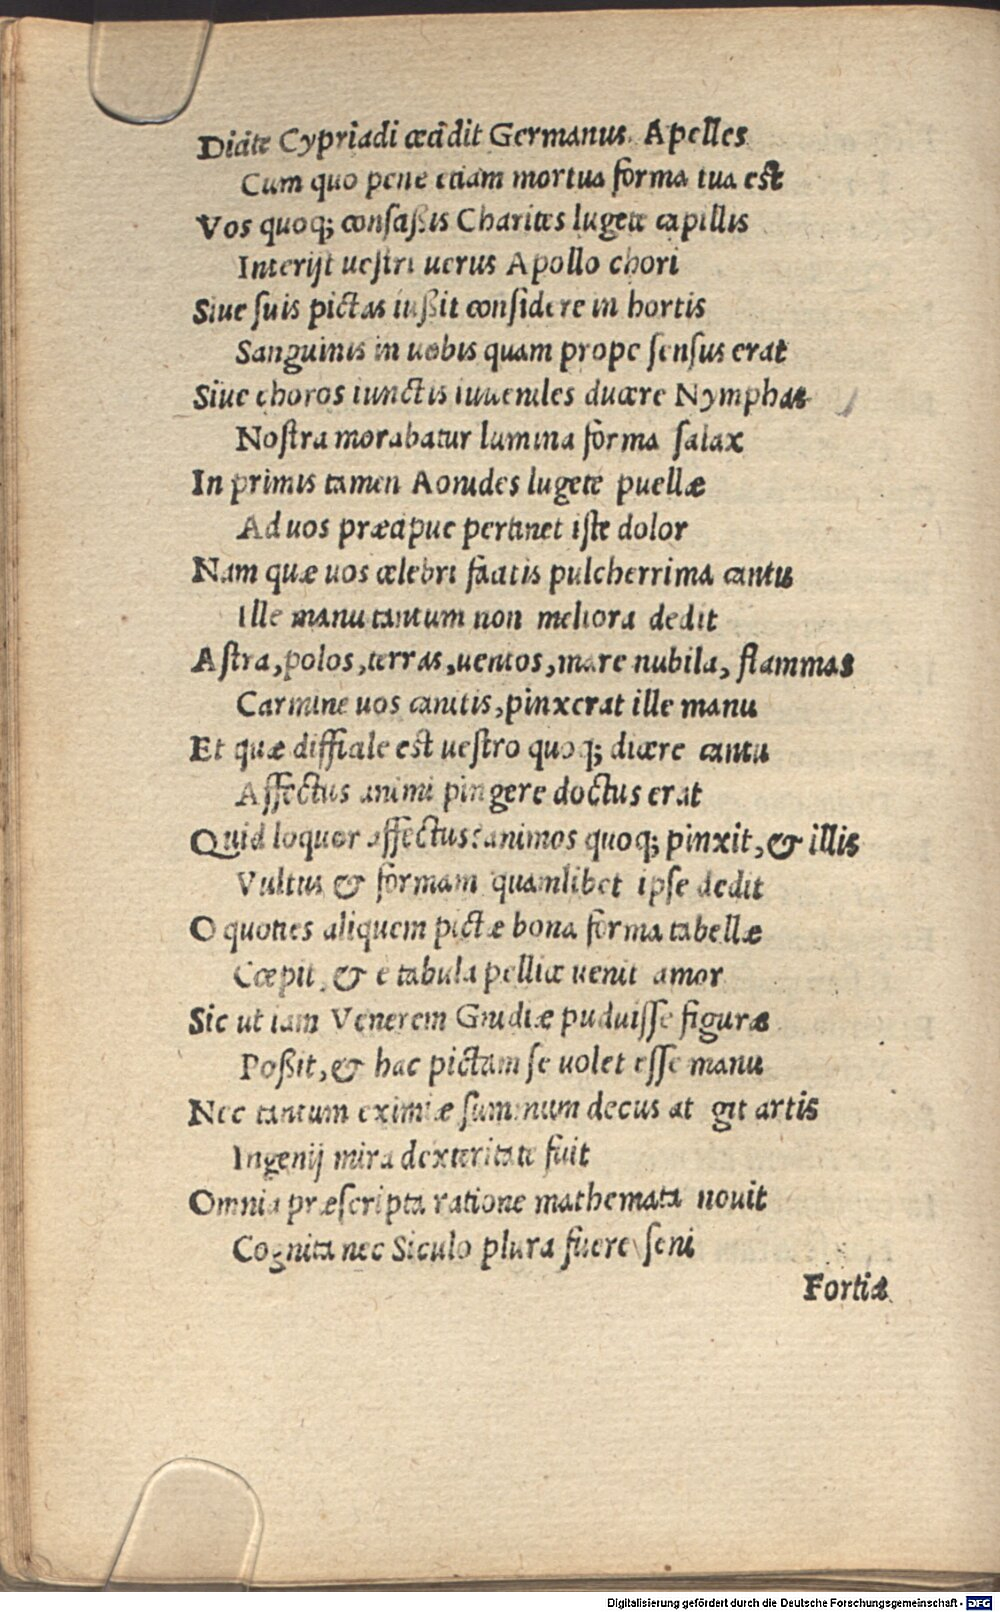 Dicite Cypriadi cecidit Germanus Apelles
Cum quo pene etiam mortua forma tua est
Vos quoq; conſaßis Charites lugete capillis
Interijt ueſtri uerus Apollo chori
Siue ſuis pictas iußit conſidere in hortis
Sanguinis in uobis quam prope ſenſus erat
Siue choros iunctis iuueniles ducere Nymphas
Noſtra morabatur lumina forma ſalax
In primis tamen Aonides lugete puellæ
Ad uos præcipue pertinet iſte dolor
Nam quæ uos celebri facitis pulcherrima cantu
Ille manu tantum non meliora dedit
Aſtra, polos, terras, uentos, mare nubila, flammas
Carmine uos canitis, pinxerat ille manu
Et quæ difficile eſt ueſtro quoq; dicere cantu
Affectus animi pingere doctus erat
Quid loquor affectus? animos quoq; pinxit, & illis
Vultus & formam quamlibet ipſe dedit
O quoties aliquem pictæ bona forma tabellæ
Cœpit, & e tabula pellice uenit amor
Sic ut iam Venerem Gnidiæ puduiſſe figuræ
Poßit, & hac pictam ſe uolet eſſe manu
Nec tantum eximiæ ſummum decus at git artis
Ingenij mira dexteritate fuit
Omnia præſcripta ratione mathemata nouit
Cognita nec Siculo plura fuere ſeni
Fortia
Digitalisierung gefördert durch die Deutsche Forschungsgemeinschaft - DFG